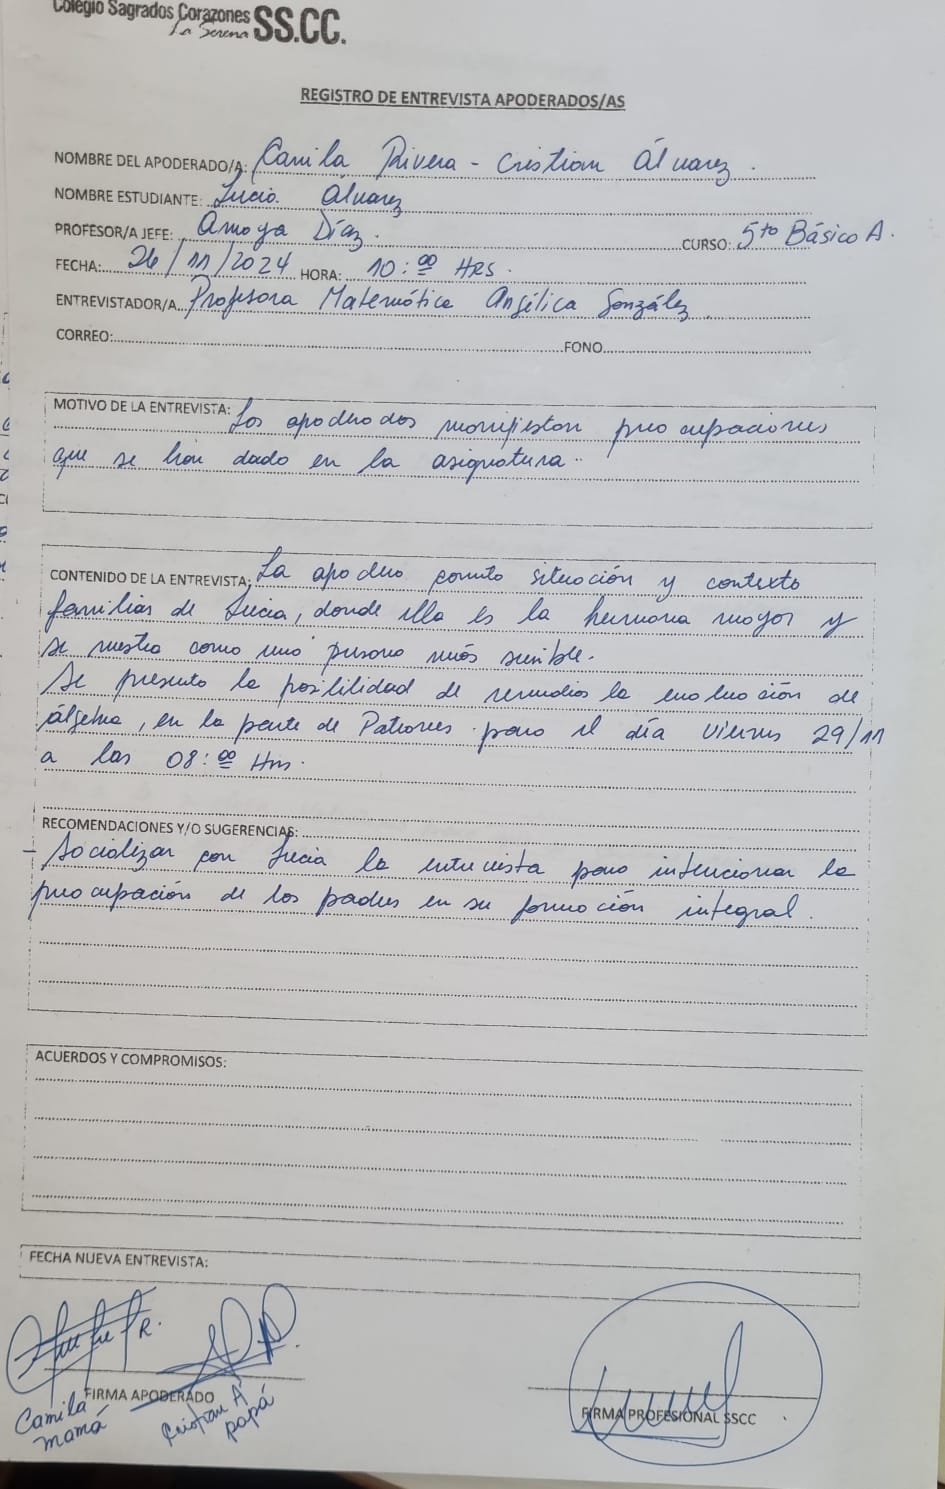 Colegio Sagrados Corazones SS.CC.
La Serena
REGISTRO DE ENTREVISTA APODERADOS/AS
NOMBRE DEL APODERADO/A: Camila Rivera - Cristian Álvarez.
NOMBRE ESTUDIANTE: Lucia Álvarez
PROFESOR/A JEFE: Amoya Díaz. CURSO: 5to Básico A.
FECHA: 26/11/2024 HORA: 10:00 HRS.
ENTREVISTADOR/A Profesora Matemática Angélica González
CORREO: FONO
MOTIVO DE LA ENTREVISTA: Los apoderados manifiestan preocupaciones
que se han dado en la asignatura.
CONTENIDO DE LA ENTREVISTA: La apodera comenta situación y contexto
familiar de Lucia, donde ella es la hermana mayor y
se muestra como una persona más sensible.
Se presenta la posibilidad de remediar la evaluación de
álgebra, en la parte de Patrones para el día viernes 29/11
a las 08:00 Hrs.
RECOMENDACIONES Y/O SUGERENCIAS:
- Socializar con Lucia la entrevista para intencionar la
preocupación de los padres en su formación integral.
ACUERDOS Y COMPROMISOS:
FECHA NUEVA ENTREVISTA:
FIRMA APODERADO
Camila
mamá
Cristian A
papá
FIRMA PROFESIONAL SSCC